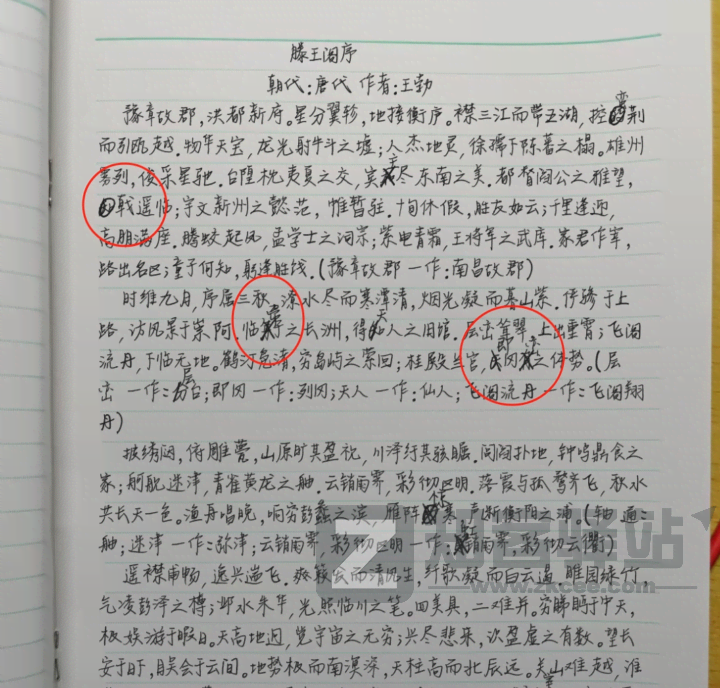 滕王阁序
朝代:唐代 作者:王勃
豫章故郡,洪都新府。星分翼轸,地接衡庐。襟三江而带五湖,控蛮荆
而引瓯越。物华天宝,龙光射牛斗之墟;人杰地灵,徐孺下陈蕃之榻。雄州
雾列,俊采星驰。台隍枕夷夏之交,宾主尽东南之美。都督阎公之雅望,
戟遥临;宇文新州之懿范,帷暂驻。十旬休假,胜友如云;千里逢迎,
高朋满座。腾蛟起凤,孟学士之词宗;紫电青霜,王将军之武库。家君作宰,
路出名区;童子何知,躬逢胜饯。(豫章故郡 一作:南昌故郡)
时维九月,序属三秋。潦水尽而寒潭清,烟光凝而暮山紫。俨骖于上
路,访风景于崇阿。临帝子之长洲,得天人之旧馆。层峦耸翠,上出重霄;飞阁
流丹,下临无地。鹤汀凫渚,穷岛屿之萦回;桂殿兰宫,即冈峦之体势。(层
峦 一作:层台;即冈 一作:列冈;天人 一作:仙人;飞阁流丹 一作:飞阁翔
丹)
披绣闼,俯雕甍,山原旷其盈视,川泽纡其骇瞩。闾阎扑地,钟鸣鼎食之
家;舸舰迷津,青雀黄龙之舳。云销雨霁,彩彻区明。落霞与孤鹜齐飞,秋水
共长天一色。渔舟唱晚,响穷彭蠡之滨,雁阵惊寒,声断衡阳之浦。(轴 通:
舳;迷津 一作:弥津;云销雨霁,彩彻区明 一作:虹销雨霁,彩彻云衢)
遥襟甫畅,逸兴遄飞。爽籁发而清风生,纤歌凝而白云遏。睢园绿竹,
气凌彭泽之樽;邺水朱华,光照临川之笔。四美具,二难并。穷睇眄于中天,
极娱游于暇日。天高地迥,觉宇宙之无穷;兴尽悲来,识盈虚之有数。望长
安于日下,目吴会于云间。地势极而南溟深,天柱高而北辰远。关山难越,谁
知客驿站
www.zkcee.com